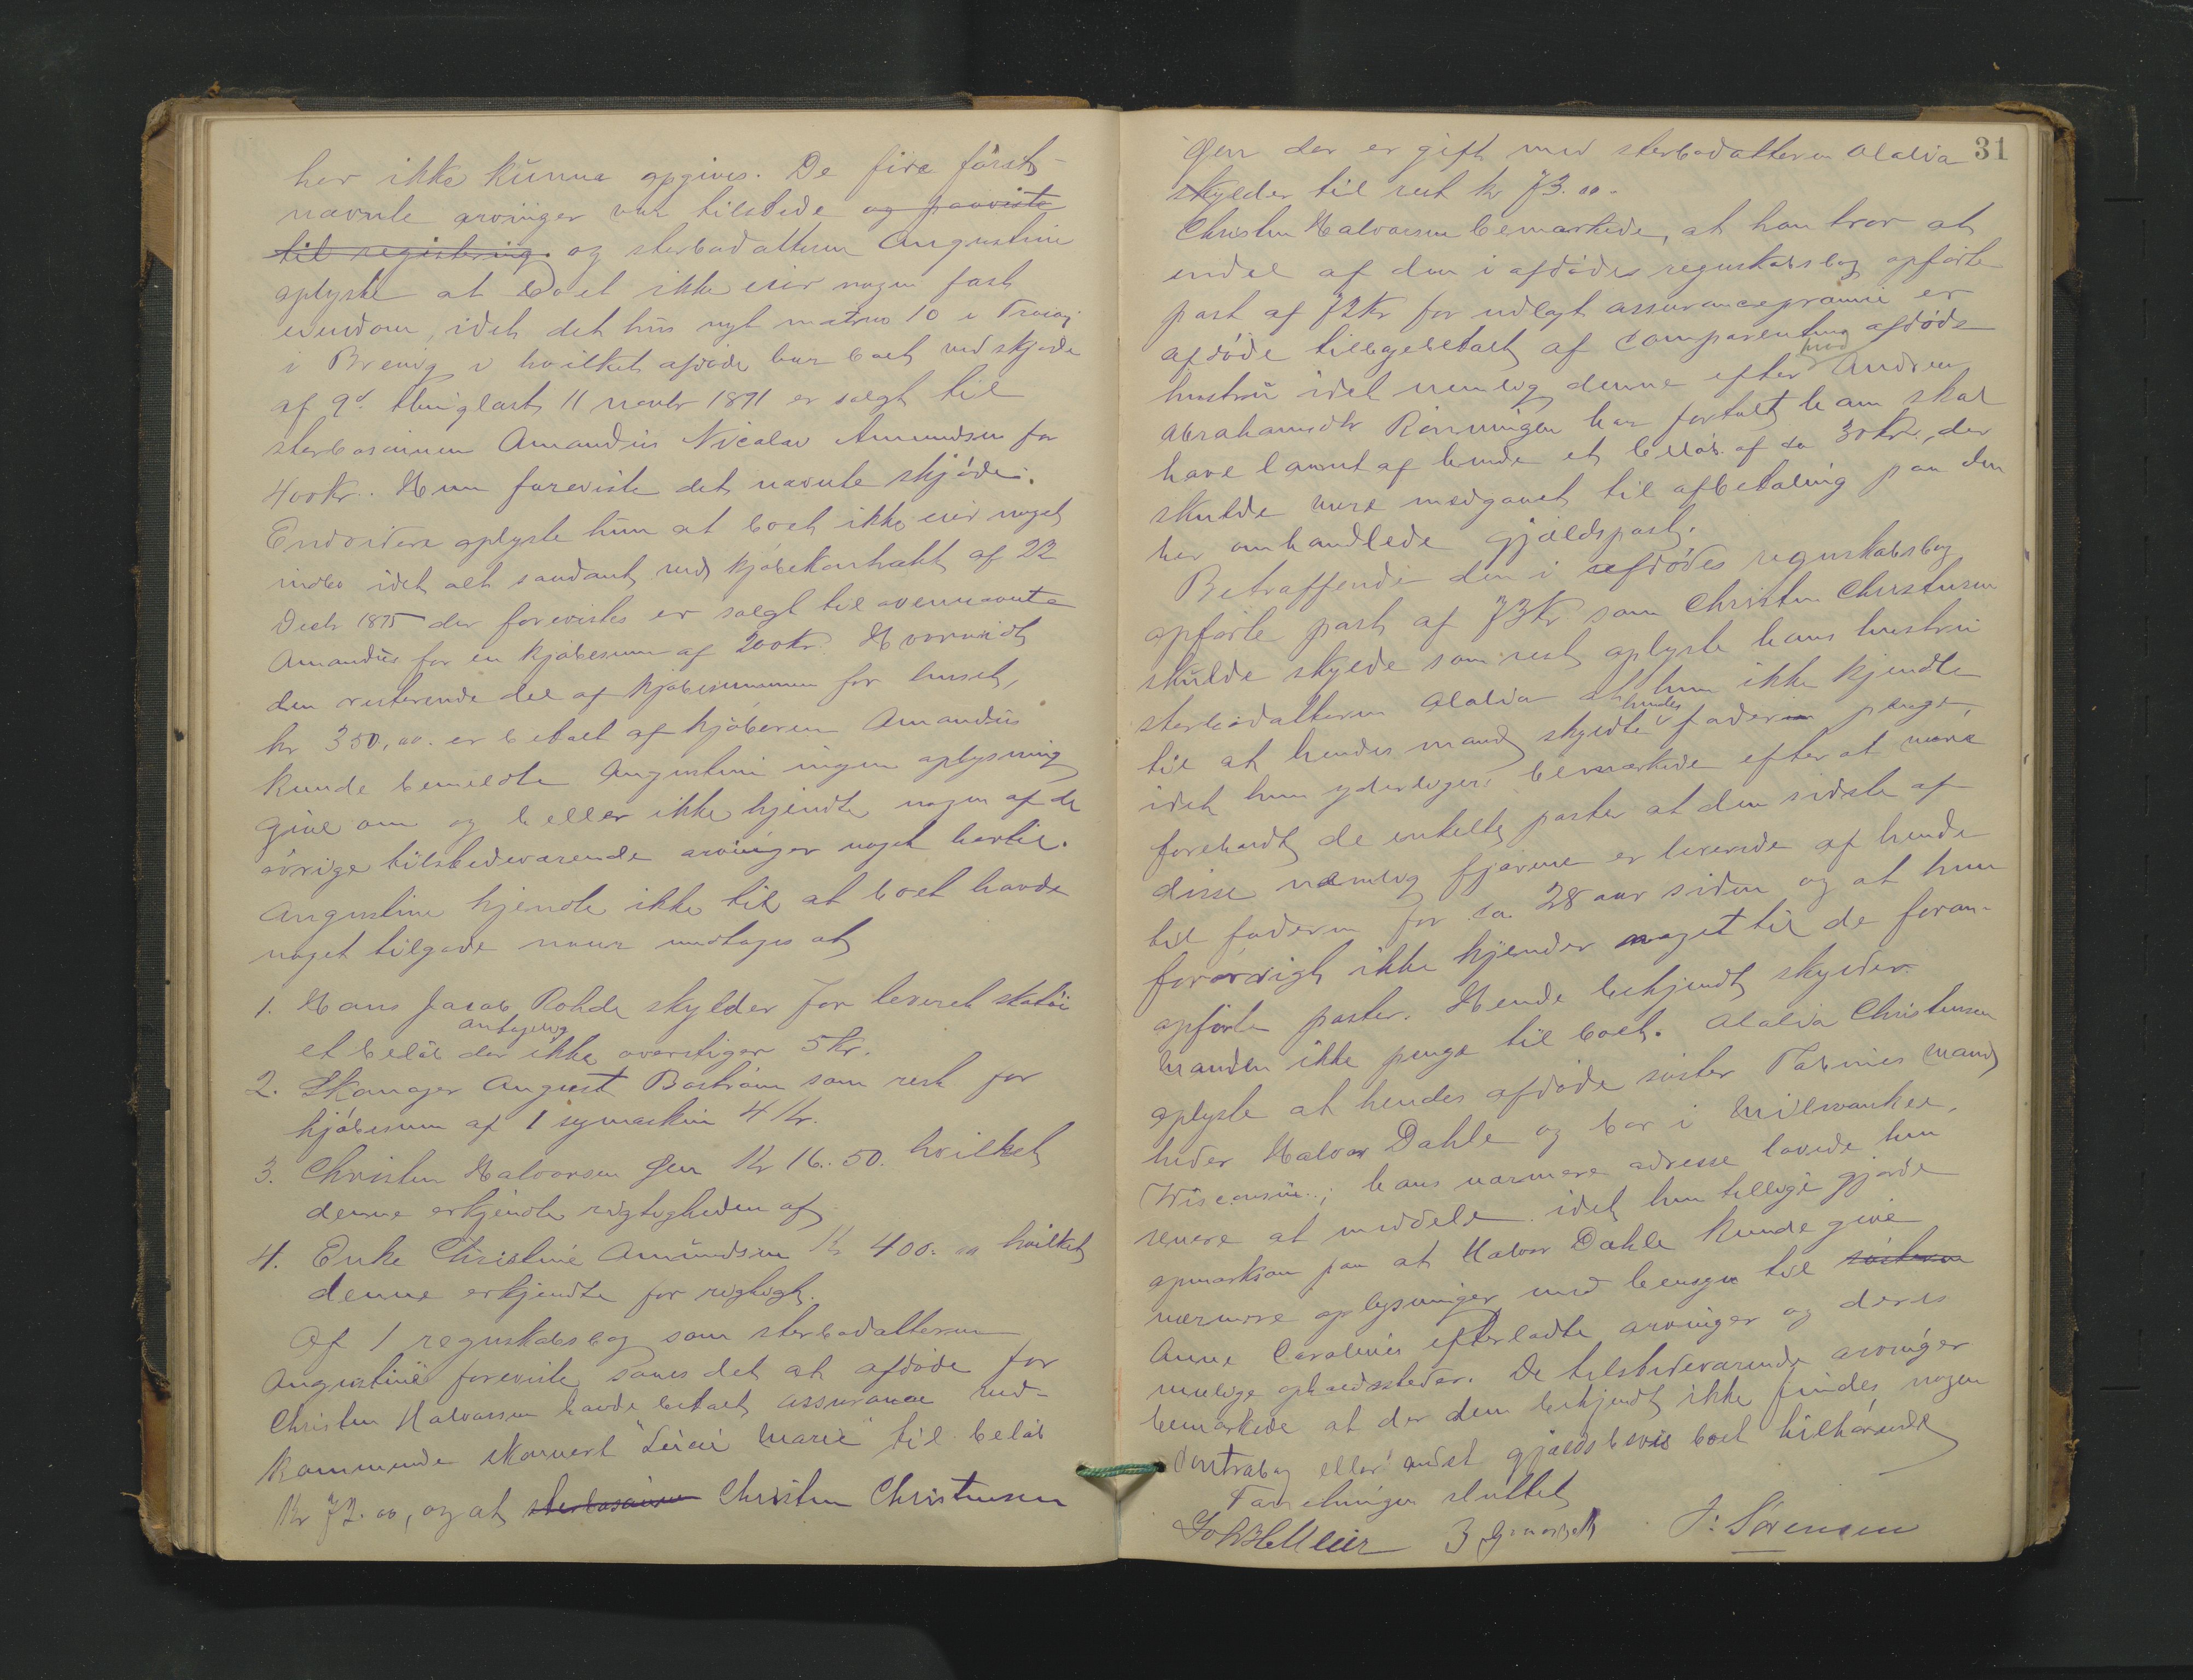 her ikke kunne opgives. De fire först-
nævnte arvinger var tilstede og paaviste
til registering. og sterbodatteren Augustine
oplyste at Boet ikke eier nogen fast
eiendom, idet det hus nyt matrno 10 i Trosvig
i Brevig i hvilket afdöde har boet ved skjöde
af 9d. thinglæst 11 novbr 1891 er solgt til
sterbosönnen Amandus Nicolai Amundsen for
400 Kr. Hun foreviste det nævnte skjöde.
Endvidere oplyste hun at boet ikke eier noget
indbo idet alt saadant ved kjöbekontrakt af 22
Decbr 1895 der forevistes er solgt til ovennævnte
Amandus for en kjöbesum af 200 Kr. Hvorvidt
den resterende del af kjöbesummen for huset,
kr 350,00. er betalt af kjöberen Amandus
kunde bemeldte Augustine ingen oplysning
give om og heller ikke kjendte nogen af de
övrige tilstedeværende arvinger noget hertil.
Augustine kjendte ikke til at boet havde
noget tilgode naar undtages at
1. Hans Jacob Rohde skylder for leveret skotöi
et belöb der antagelig ikke overstiger 5 Kr.
2. Skomager August Boström som rest for
kjöbesum af 1 symaskin 4 Kr.
3. Christen Halvorsen Öen Kr 16.50. hvilket
denne erkjendte rigtigheden af
4. Enke Christine Amundsen Kr 400.00 hvilket
denne erkjendte for rigtigt.
Af 1 regnskabsbog som sterbodatteren
Augustine foreviste saaes det at afdöde for
Christen Halvorsen havde betalt assurance ved-
kommende skonnert "Lucie Marie" til belöb
Kr 72.00, og at sterbosönnen Christen Christensen
31
Öen der er gift med sterbodatteren Alalia
skylder til rest kr 73.00.
Christen Halvorsen bemærkede, at han tror at
endel af den i afdödes regnskabsbog opförte
post af 72 Kr for udlagt assurancepræmie er
afdöde tilbagebetalt af comparentens afdöde
hustru idet nemlig denne efter hvad Andrea
Abrahamsdtr Rönningen har fortalt ham skal
have laant af hende et belöb af ca 30 Kr, der
skulde være medgaaet til afbetaling paa den
her omhandlede gjældspost.
Betræffende den i afdödes regnskabsbog
opförte post af 73 Kr som Christen Christensen
skulde skylde som rest oplyste hans hustru
sterbodatteren Alalia at hun ikke kjendte
til at hendes mand skyldte hendes fader penge,
idet hun yderligere bemærkede efter at være
foreholdt de enkelte poster at den sidste af
disse nemlig fjærene er leverede af hende
til faderen for ca. 28 aar siden og at hun
forövrigt ikke kjender noget til de foran-
opförte poster. Hende bekjendt skylder
manden ikke penge til boet. Alalia Christensen
oplyste at hendes afdöde söster Tabines mand
heder Halvor Dahle og bor i Milwaukee,
Wisconsin; hans nærmere adresse lovede hun
senere at meddele idet hun tillige gjorde
opmærksom paa at Halvor Dahle kunde give
nærmere oplysninger med hensyn til sösteren
Anne Carolines efterladte arvinger og deres
mulige opholdssteder. De tilstedeværende arvinger
bemærkede at der dem bekjendt ikke findes nogen
Contrabog eller andet gjældsbevis boet tilhörende
Forretningen sluttet
J. Sörensen